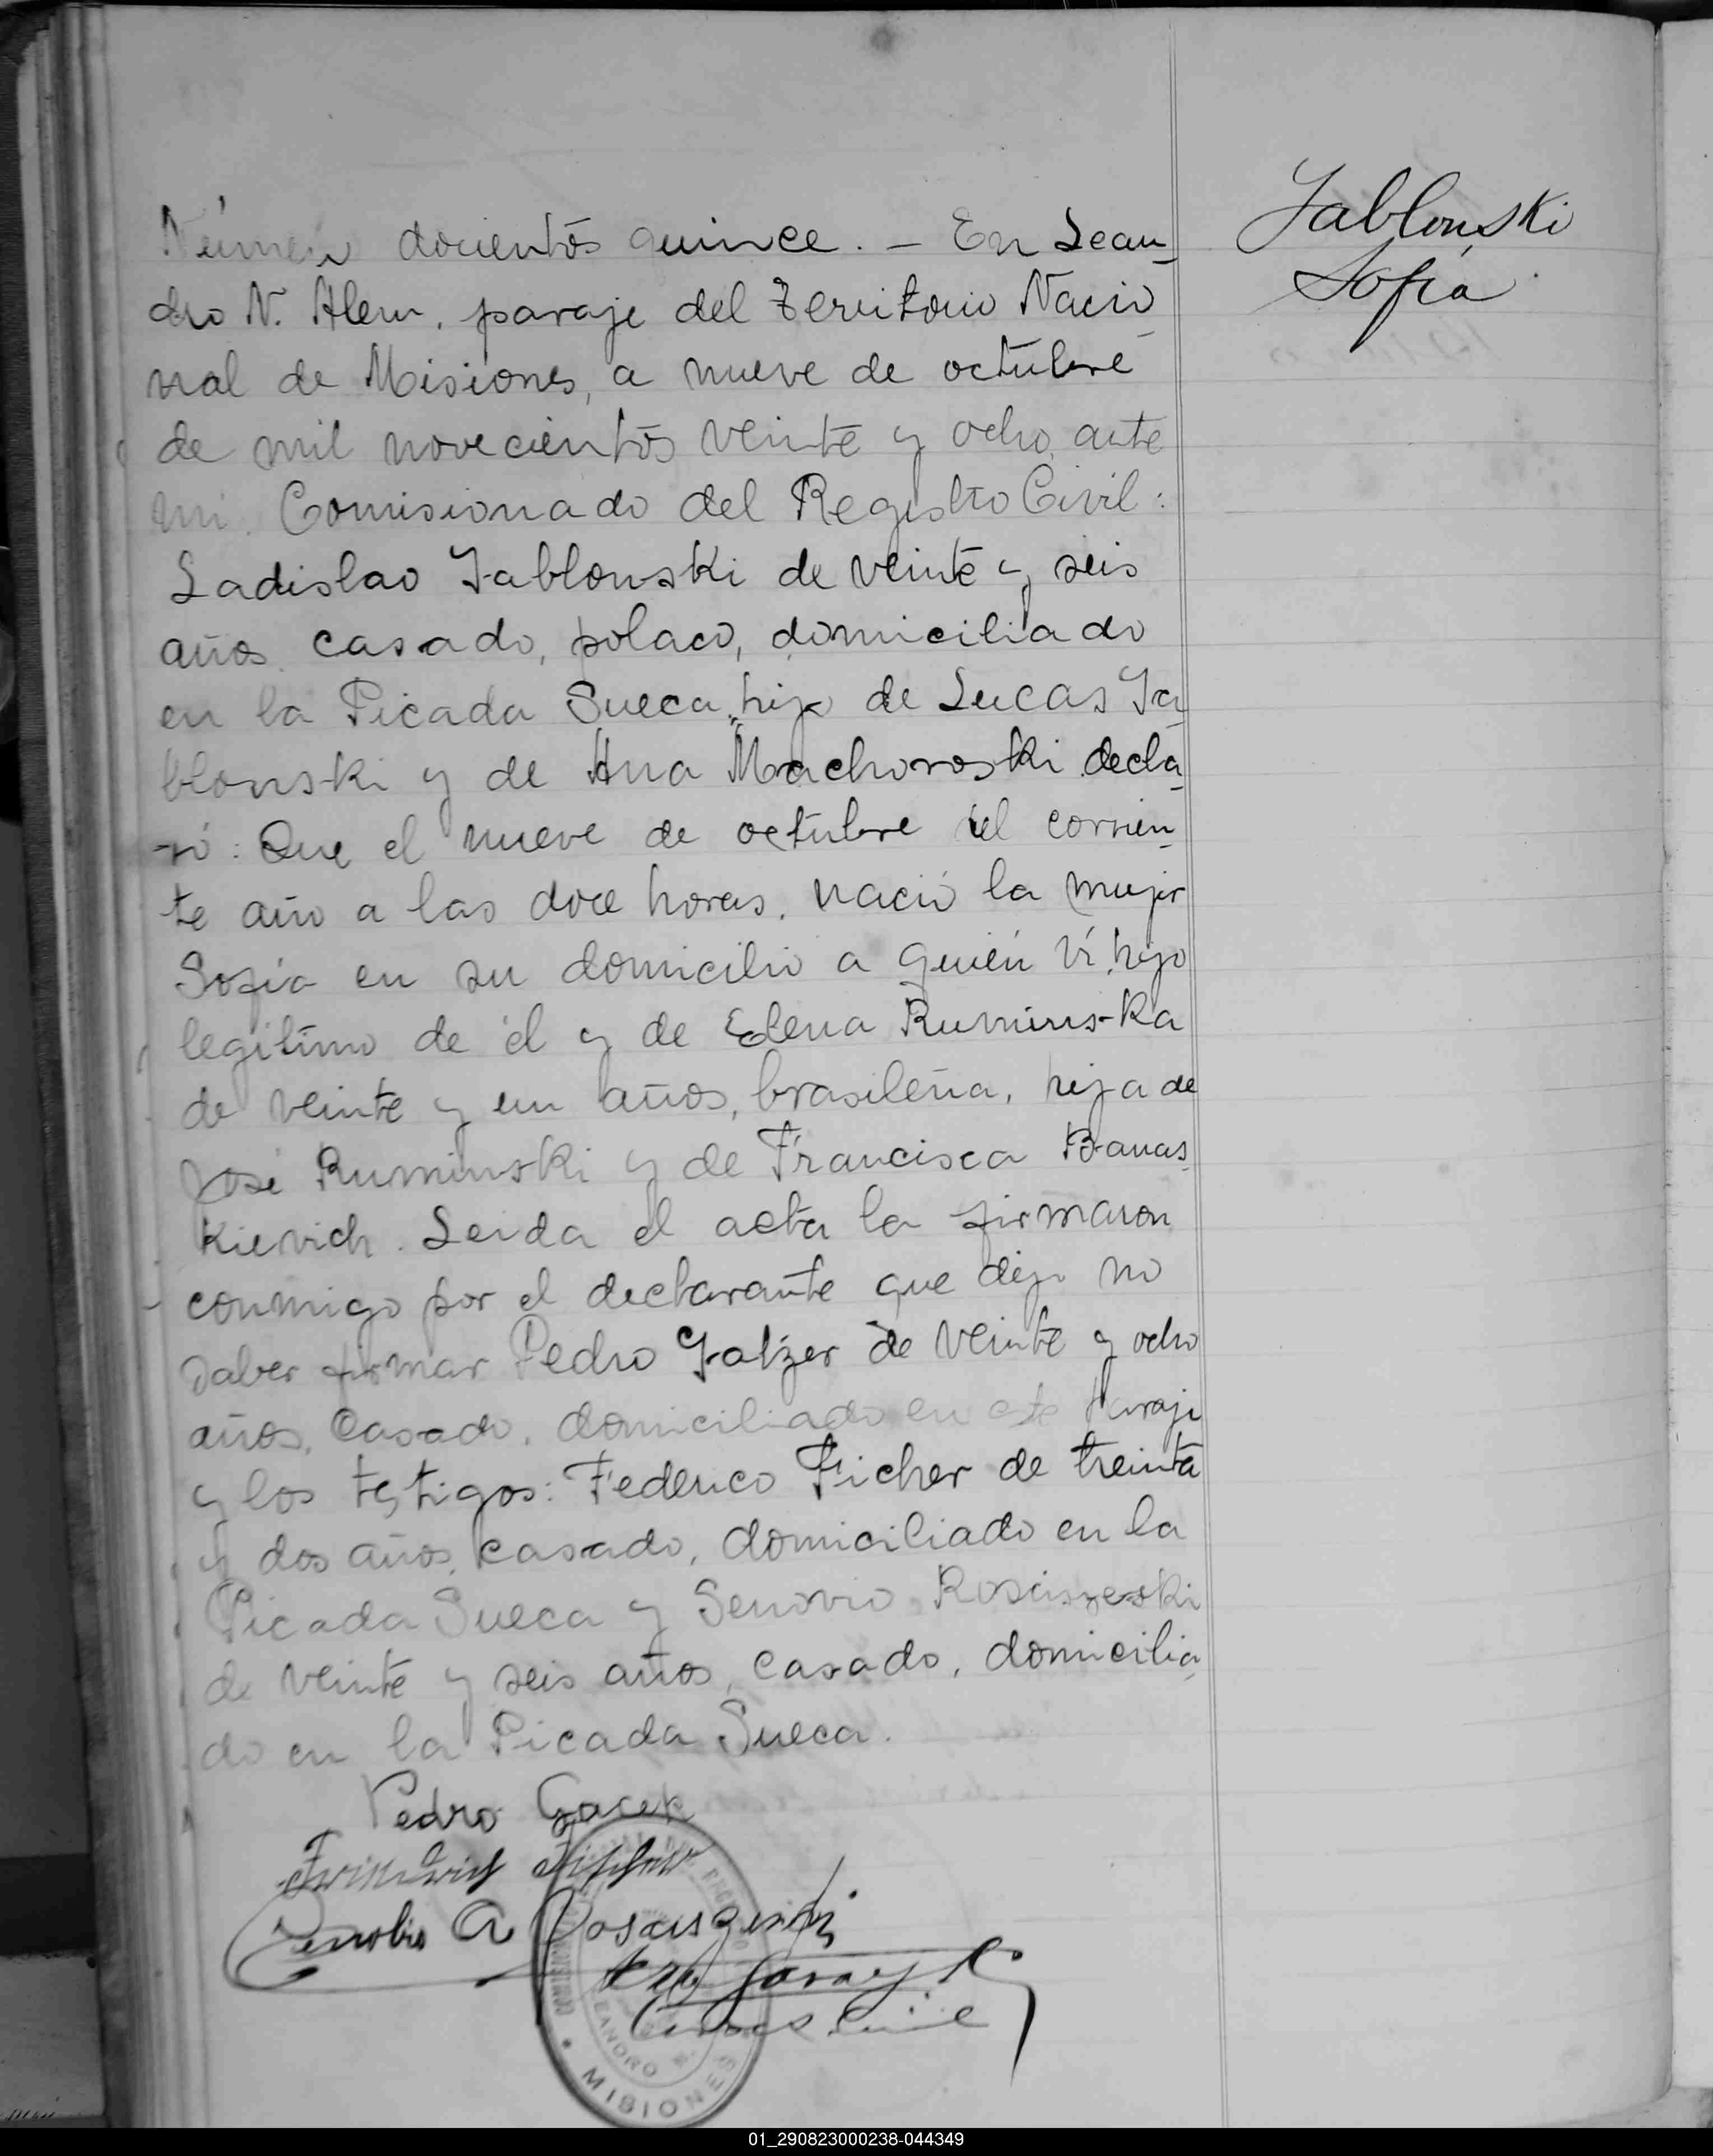 Jablonski
Sofía
Número docientos quince. – En Lean-
dro N. Alem, paraje del Territorio Nacio-
nal de Misiones, a nueve de octubre
de mil novecientos veinte y ocho, ante
mi. Comisionado del Registro Civil:
Ladislao Jablonski de veinte y seis
años, casado, polaco, domiciliado
en la Picada Sueca, hijo de Lucas Ja-
blonski y de Ana Machoroski decla-
ró: Que el nueve de octubre del corrien-
te año a las doce horas, nació la mujer
Sofía en su domicilio a quién ví, hijo
legítimo de él y de Elena Ruminska
de veinte y un años, brasileña, hija de
José Ruminski y de Francisca Banas-
kievich. Leida el acta la firmaron
conmigo por el declarante que dijo no
saber firmar Pedro Gatzer de veinte y ocho
años, casado, domiciliado en este paraje
y los testigos: Federico Ficher de treinta
y dos años, casado, domiciliado en la
Picada Sueca y Senovio
de veinte y seis años, casado, domicilia-
do en la Picada Sueca.
Pedro Gacek
Friedrich Fischer
Zenobio A
MISIONES
01_290823000238-044349